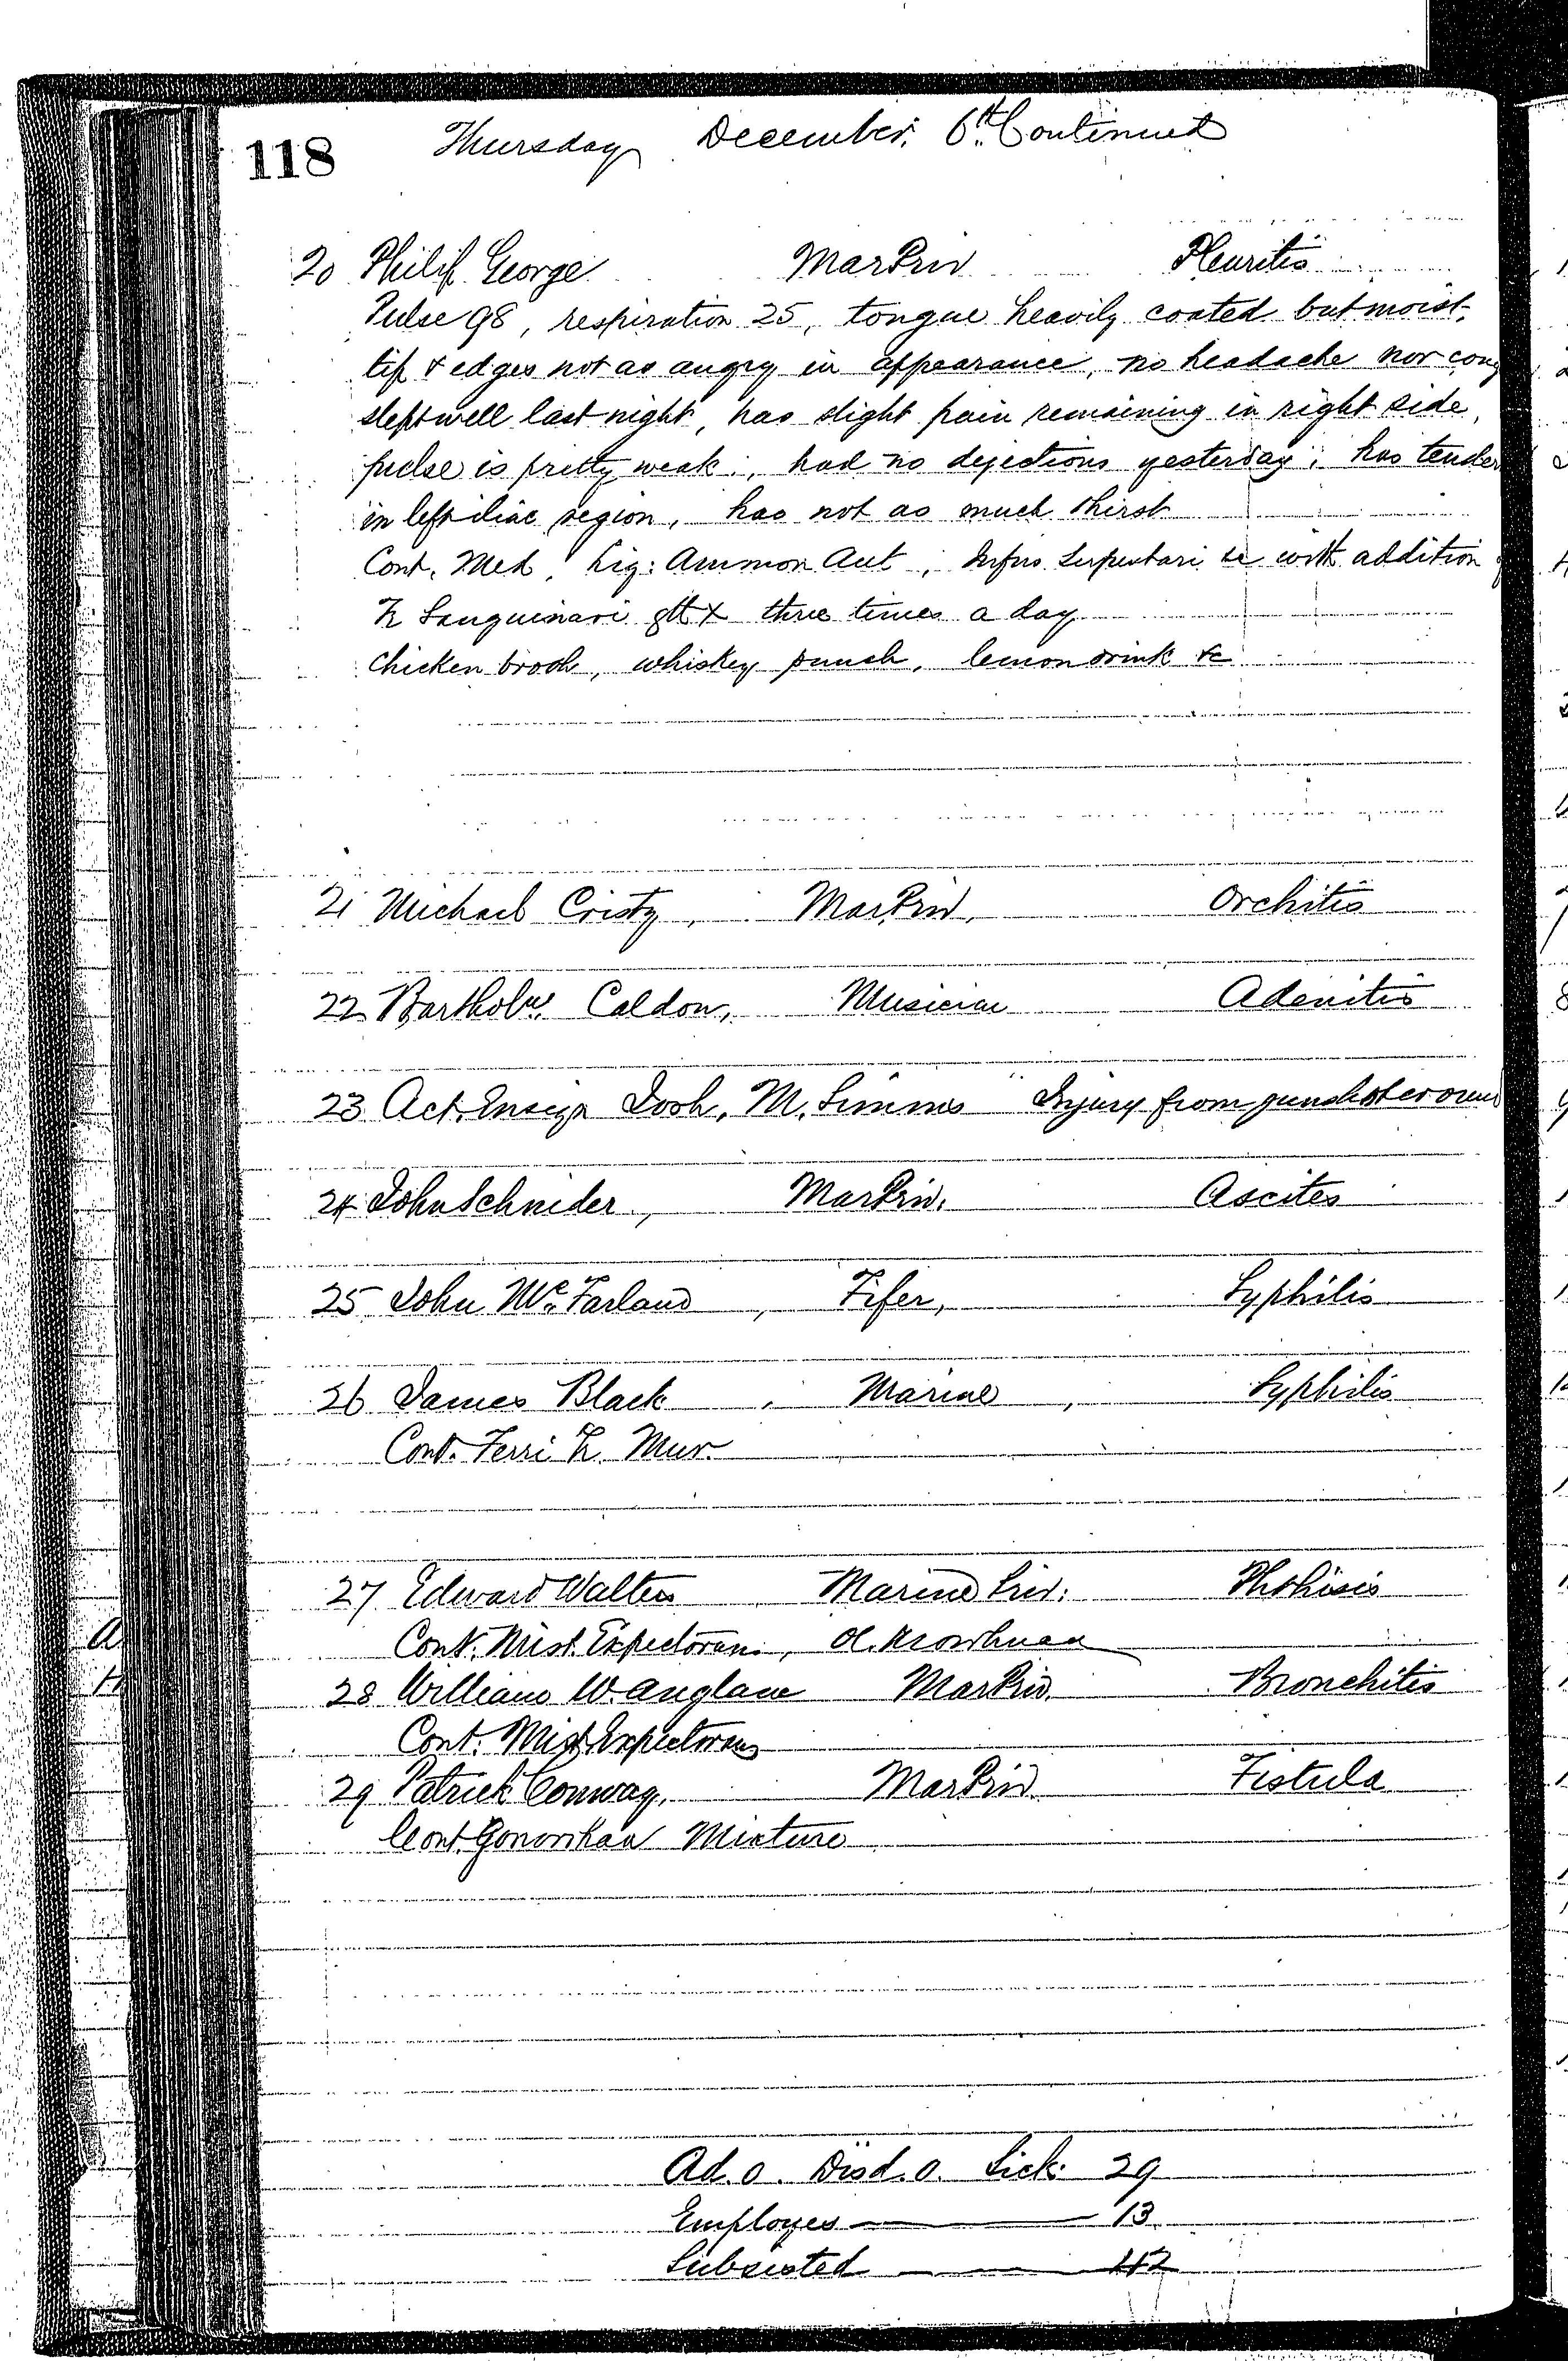 118 Thursday December, 6th. Continued
20 Philip George MarPriv Pleuritis
Pulse 98, respiration 25, tongue heavily coated but moist,
tip & edges not as angry in appearance, no headache nor coug
slept well last night, has slight pain remaining in right side,
pulse is pretty weak, had no dejections yesterday; has tender
in left iliac region, has not as much thirst
Cont. Med. Liq: Ammon Aut, Infus Serpentari ae with addition
Tr Sanguinari gtt X three times a day
Chicken broth, whiskey punch, lemon drink &c
21 Michael Cristy, MarPriv, Orchitis
22 Bartholw. Caldon, Musician Adenitis
23 Act. Ensign Josh. M. Simms Injury from gunshot woun
24 John Schneider, MarPriv. Ascites
25 John McFarland, Fifer, Syphilis
26 James Black, Marine, Syphilis
Cont. Ferri Tr. Mur.
27 Edward Walters Marine Priv: Phthisis
Cont. Mist. Expectorans, Ol. Morrhuae
28 William W. Anglane MarPriv. Bronchitis
Cont. Mist Expectorans
29 Patrick Conway, MarPriv. Fistula
Cont. Gonorrhaa Mixture
Ad. 0. Disd. 0. Sick. 29
Employes 13
Subsisted 42